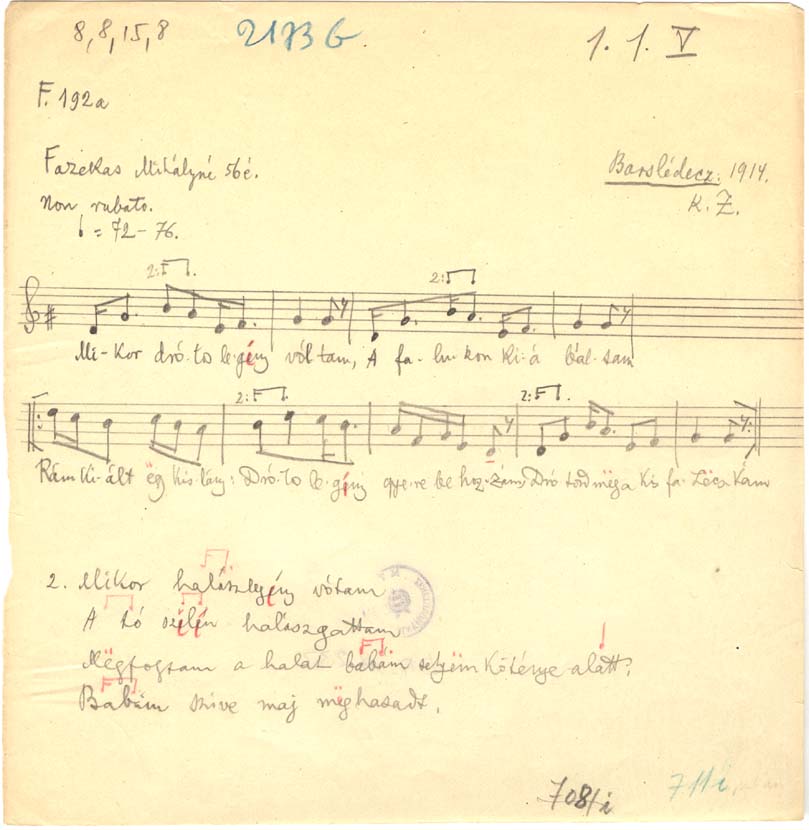 8, 8, 15, 8 21B6. 1. 1. V
F. 192a
Fazekas Mihályné 56é. Barslédecz. 1914.
Non rubato. K. Z.
= 72 - 76.
2: 2:
Mi-kor dró-to le-gény vól-tam, A fa-lu-kon ki-á bál-tam
2: 2:
Rám ki-ált ëg kis lány: Dró-to le-gény gye-re be hoz-zám, Drótozd mëg a kis fa-zëcskám
2. Mikor halászlegény vótam
A tó szélén halászgattam
Mëgfogtam a halat babám selyëm köténye alatt,
Babám szive maj mëghasadt.
708/i 711i